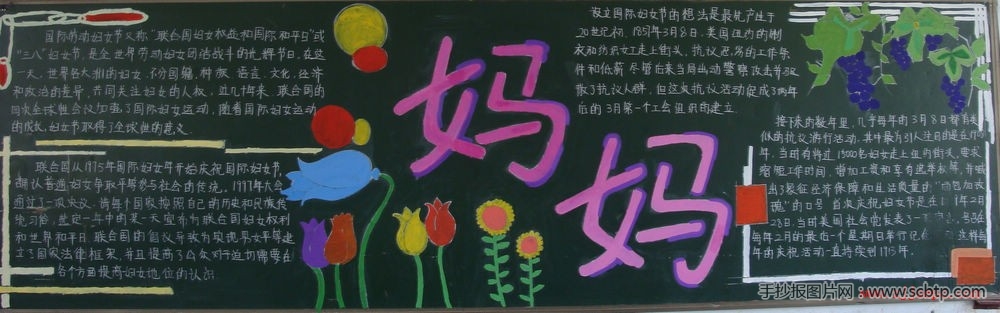 国际劳动妇女节又称"联合国妇女权益和国际和平日"或
"三八"妇女节,是全世界劳动妇女团结战斗的光辉节日.在这
一天,世界各大洲的妇女,不分国籍、种族、语言、文化、经济
和政治的差异,共同关注妇女的人权.近几十年来,联合国的
四次全球性会议加强了国际妇女运动,随着国际妇女运动
的成长,妇女节取得了全球性的意义.
联合国从1975年国际妇女年开始庆祝国际妇女节,
确认普通妇女争取平等参与社会的传统.1997年大会
通过了一项决议,请每年国家按照自己的历史和民族传
统习俗,选定一年中的某一天宣布为联合国妇女权利
和世界和平日.联合国的倡议导致为实现男女平等建
立了国家法律框架,并且提高了公众对于迫切需要在
各个方面提高妇女地位的认识
妈妈
设立国际妇女节的想法是最先产生于
20世纪初,1857年3月8日,美国纽约的制
衣和纺织女工走上街头,抗议恶劣的工作条
件和低薪.尽管后来当局出动警察攻击并驱
散了抗议人群,但这次抗议活动促成了两年
后的3月第一个工会组织的建立.
接下来的数年里,几乎每年的3月8日都有类
似的抗议游行活动.其中最为引人注目的是在
年,当时有将近15000名妇女走上纽约街头,要求
缩短工作时间,增加工资和享有选举权等,并喊
出了象征经济保障和生活质量的"面包加玫
瑰"的口号.首次庆祝妇女节是在 年2月
28日,当时美国社会党发表了一项 号召在
每年2月的最后一个星期日举行纪 这样每
年的庆祝活动一直持续到1913年.
手抄报图片网:www.scbtp.com